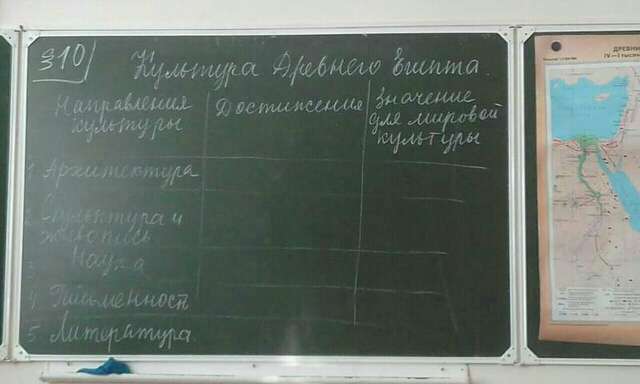 §10
Культура Древнего Египта.
Направления культуры
Достижения
Значение для мировой культуры
1. Архитектура
2. Скульптура и живопись
3. Наука
4. Письменност
5. Литература.
ДРЕВНИ
IV—I тысяч